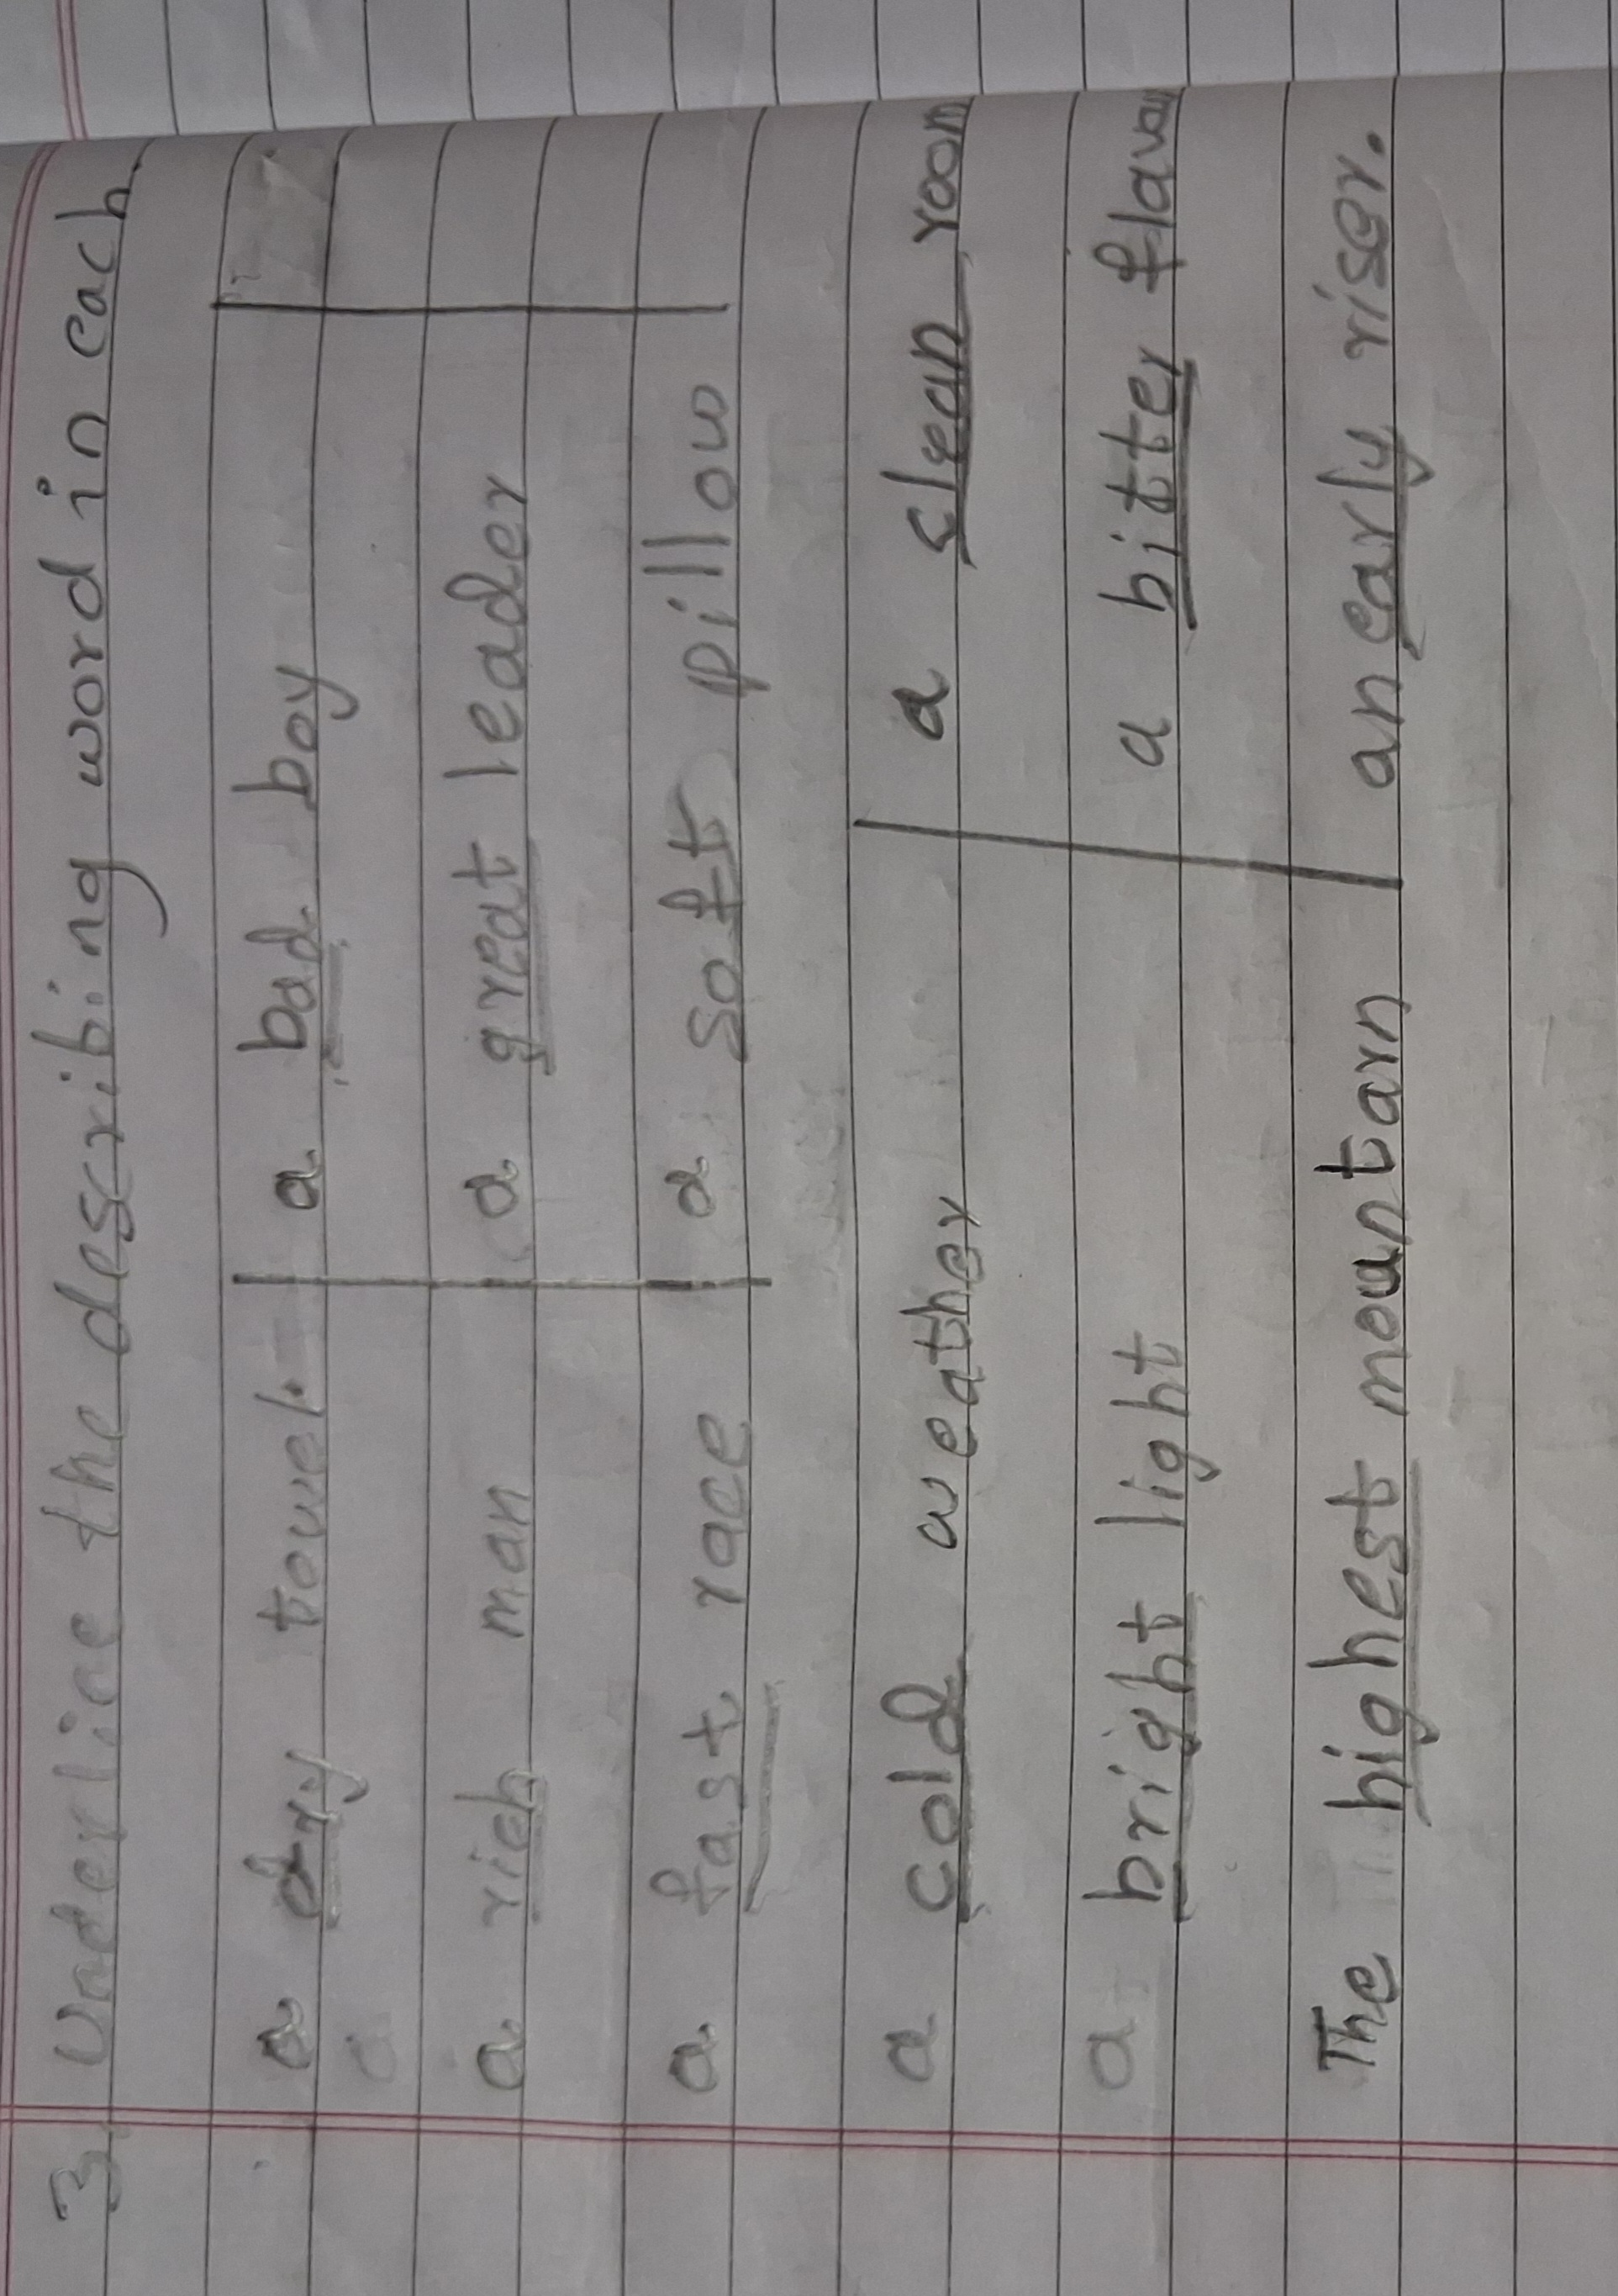 3. Underline the describing word in each.
a dry towel. a bad boy
a rich man a great leader
a fast race a soft pillow
a cold weather a clean room
a bright light a bitter flavour
The highest mountarn an early riser.